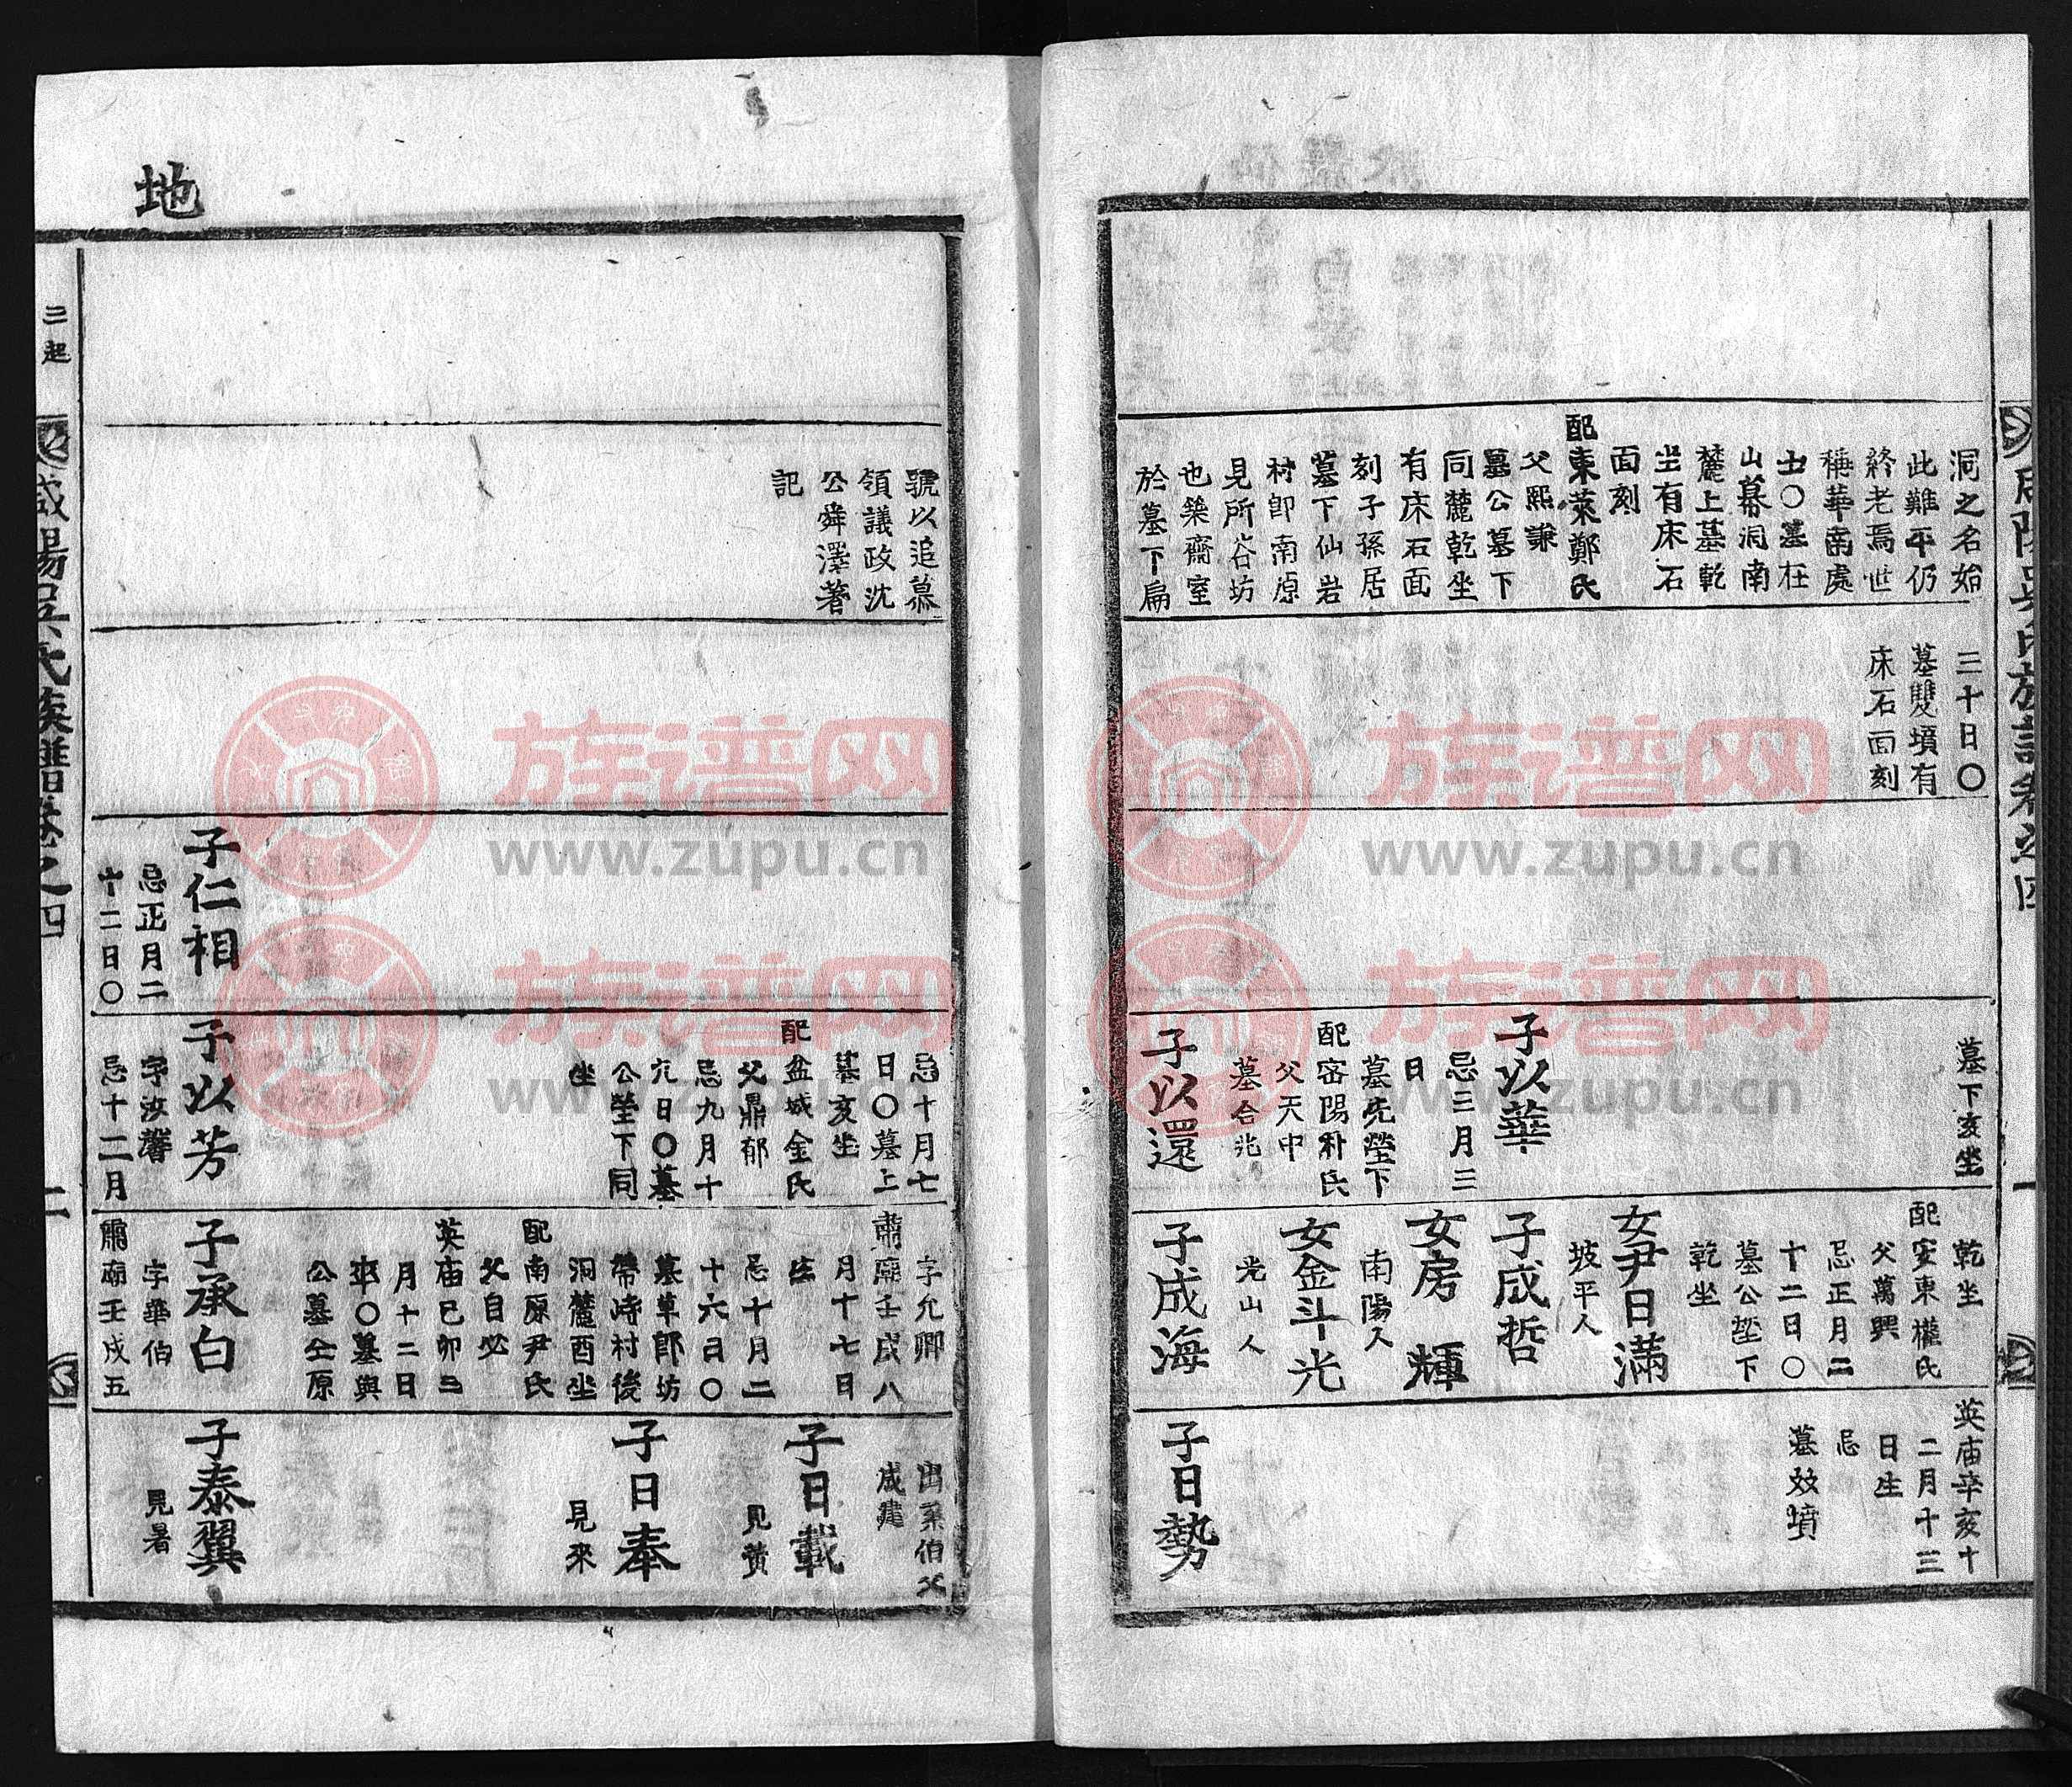 洞之名始
此難平仍
終老焉世
稱華南處
士○墓在
山幕洞南
麓上墓乾
坐有床石
面刻
配東萊鄭氏
父熙謙
墓公墓下
同麓乾坐
有床石面
刻子孫居
墓下仙岩
村即南原
見所谷坊
也築齋室
於墓下扁
三十日○
墓雙墳有
床石面刻
墓下亥坐
子以華
忌三月三
日
墓先塋下
配密陽朴氏
父天中
墓合兆
子以還
乾坐
配安東權氏
父萬興
忌正月二
十二日○
墓公塋下
乾坐
女尹日滿
坡平人
子成哲
女房輝
南陽人
女金斗光
光山人
子成海
英庙辛亥十
二月十三
日生
忌
墓效墳
子日勢
地
二起
咸陽吳氏族譜卷之四
二
號以追慕
領議政沈
公舜澤著
記
子仁相
忌正月二
十二日○
忌十月七
日○墓上
墓亥坐
配盆城金氏
父鼎郁
忌九月十
六日○墓
公塋下同
坐
子以芳
字汝馨
忌十二月
字允卿
肅廟壬戌八
月十七日
生
忌十月二
十六日○
墓草郎坊
帶峙村後
洞麓酉坐
配南原尹氏
父自必
英庙己卯三
月十二日
卒○墓與
公墓仝原
子承白
字華伯
肅廟壬戌五
出系伯父
成建
子日載
見黃
子日奉
見來
子泰翼
見暑
族谱网
www.zupu.cn
族谱网
www.zupu.cn
族谱网
www.zupu.cn
族谱网
www.zupu.cn